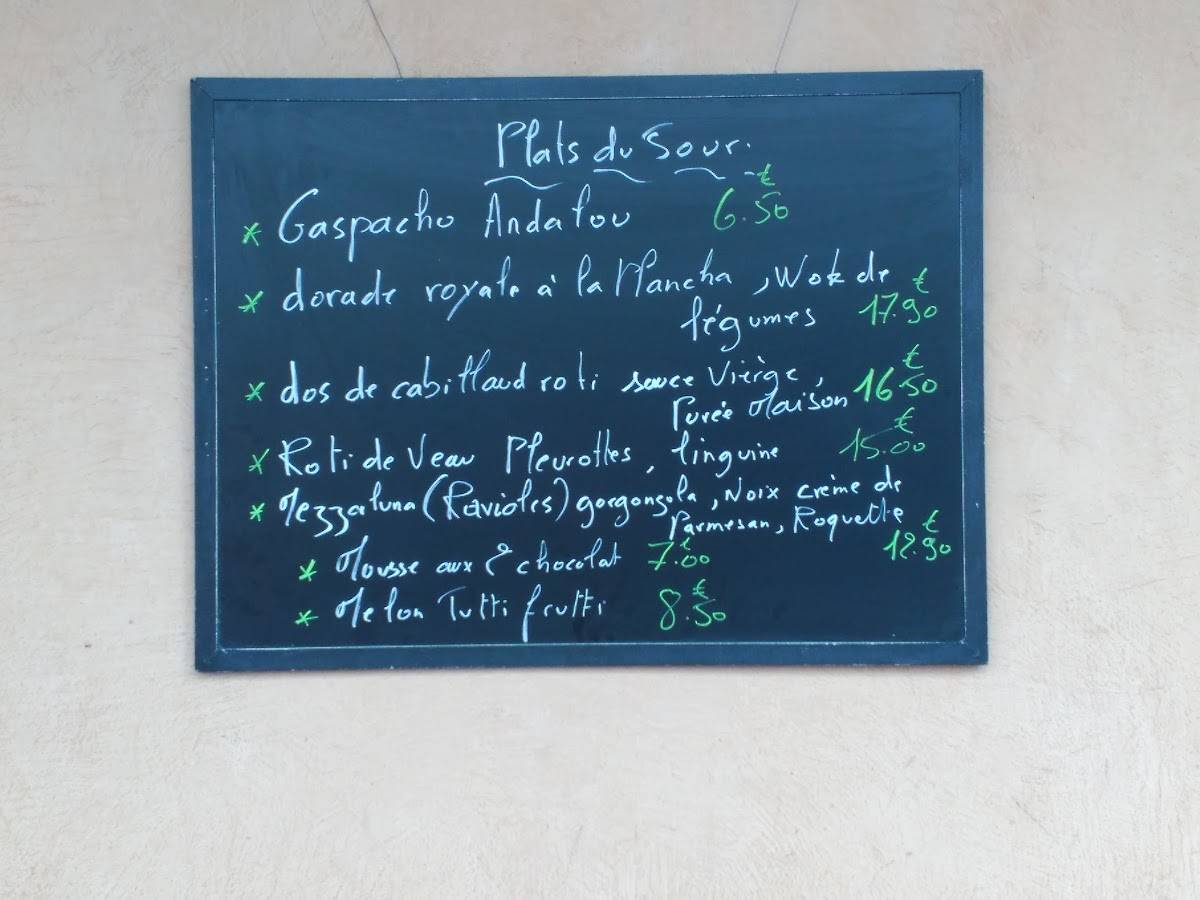 Plats du Jour.
* Gaspacho Andalou 6.50 €
* dorade royale à la Plancha, Wok de
légumes 17.90 €
* dos de cabillaud roti sauce Vièrge,
Purée Maison 16.50 €
* Roti de Veau Pleurottes, linguine 15.00 €
* Mezzaluna (Ravioles) gorgonzola, Noix crème de
Parmesan, Roquette 12.90 €
* Mousse aux 2 chocolat 7.00 €
* Melon Tutti frutti 8.50 €